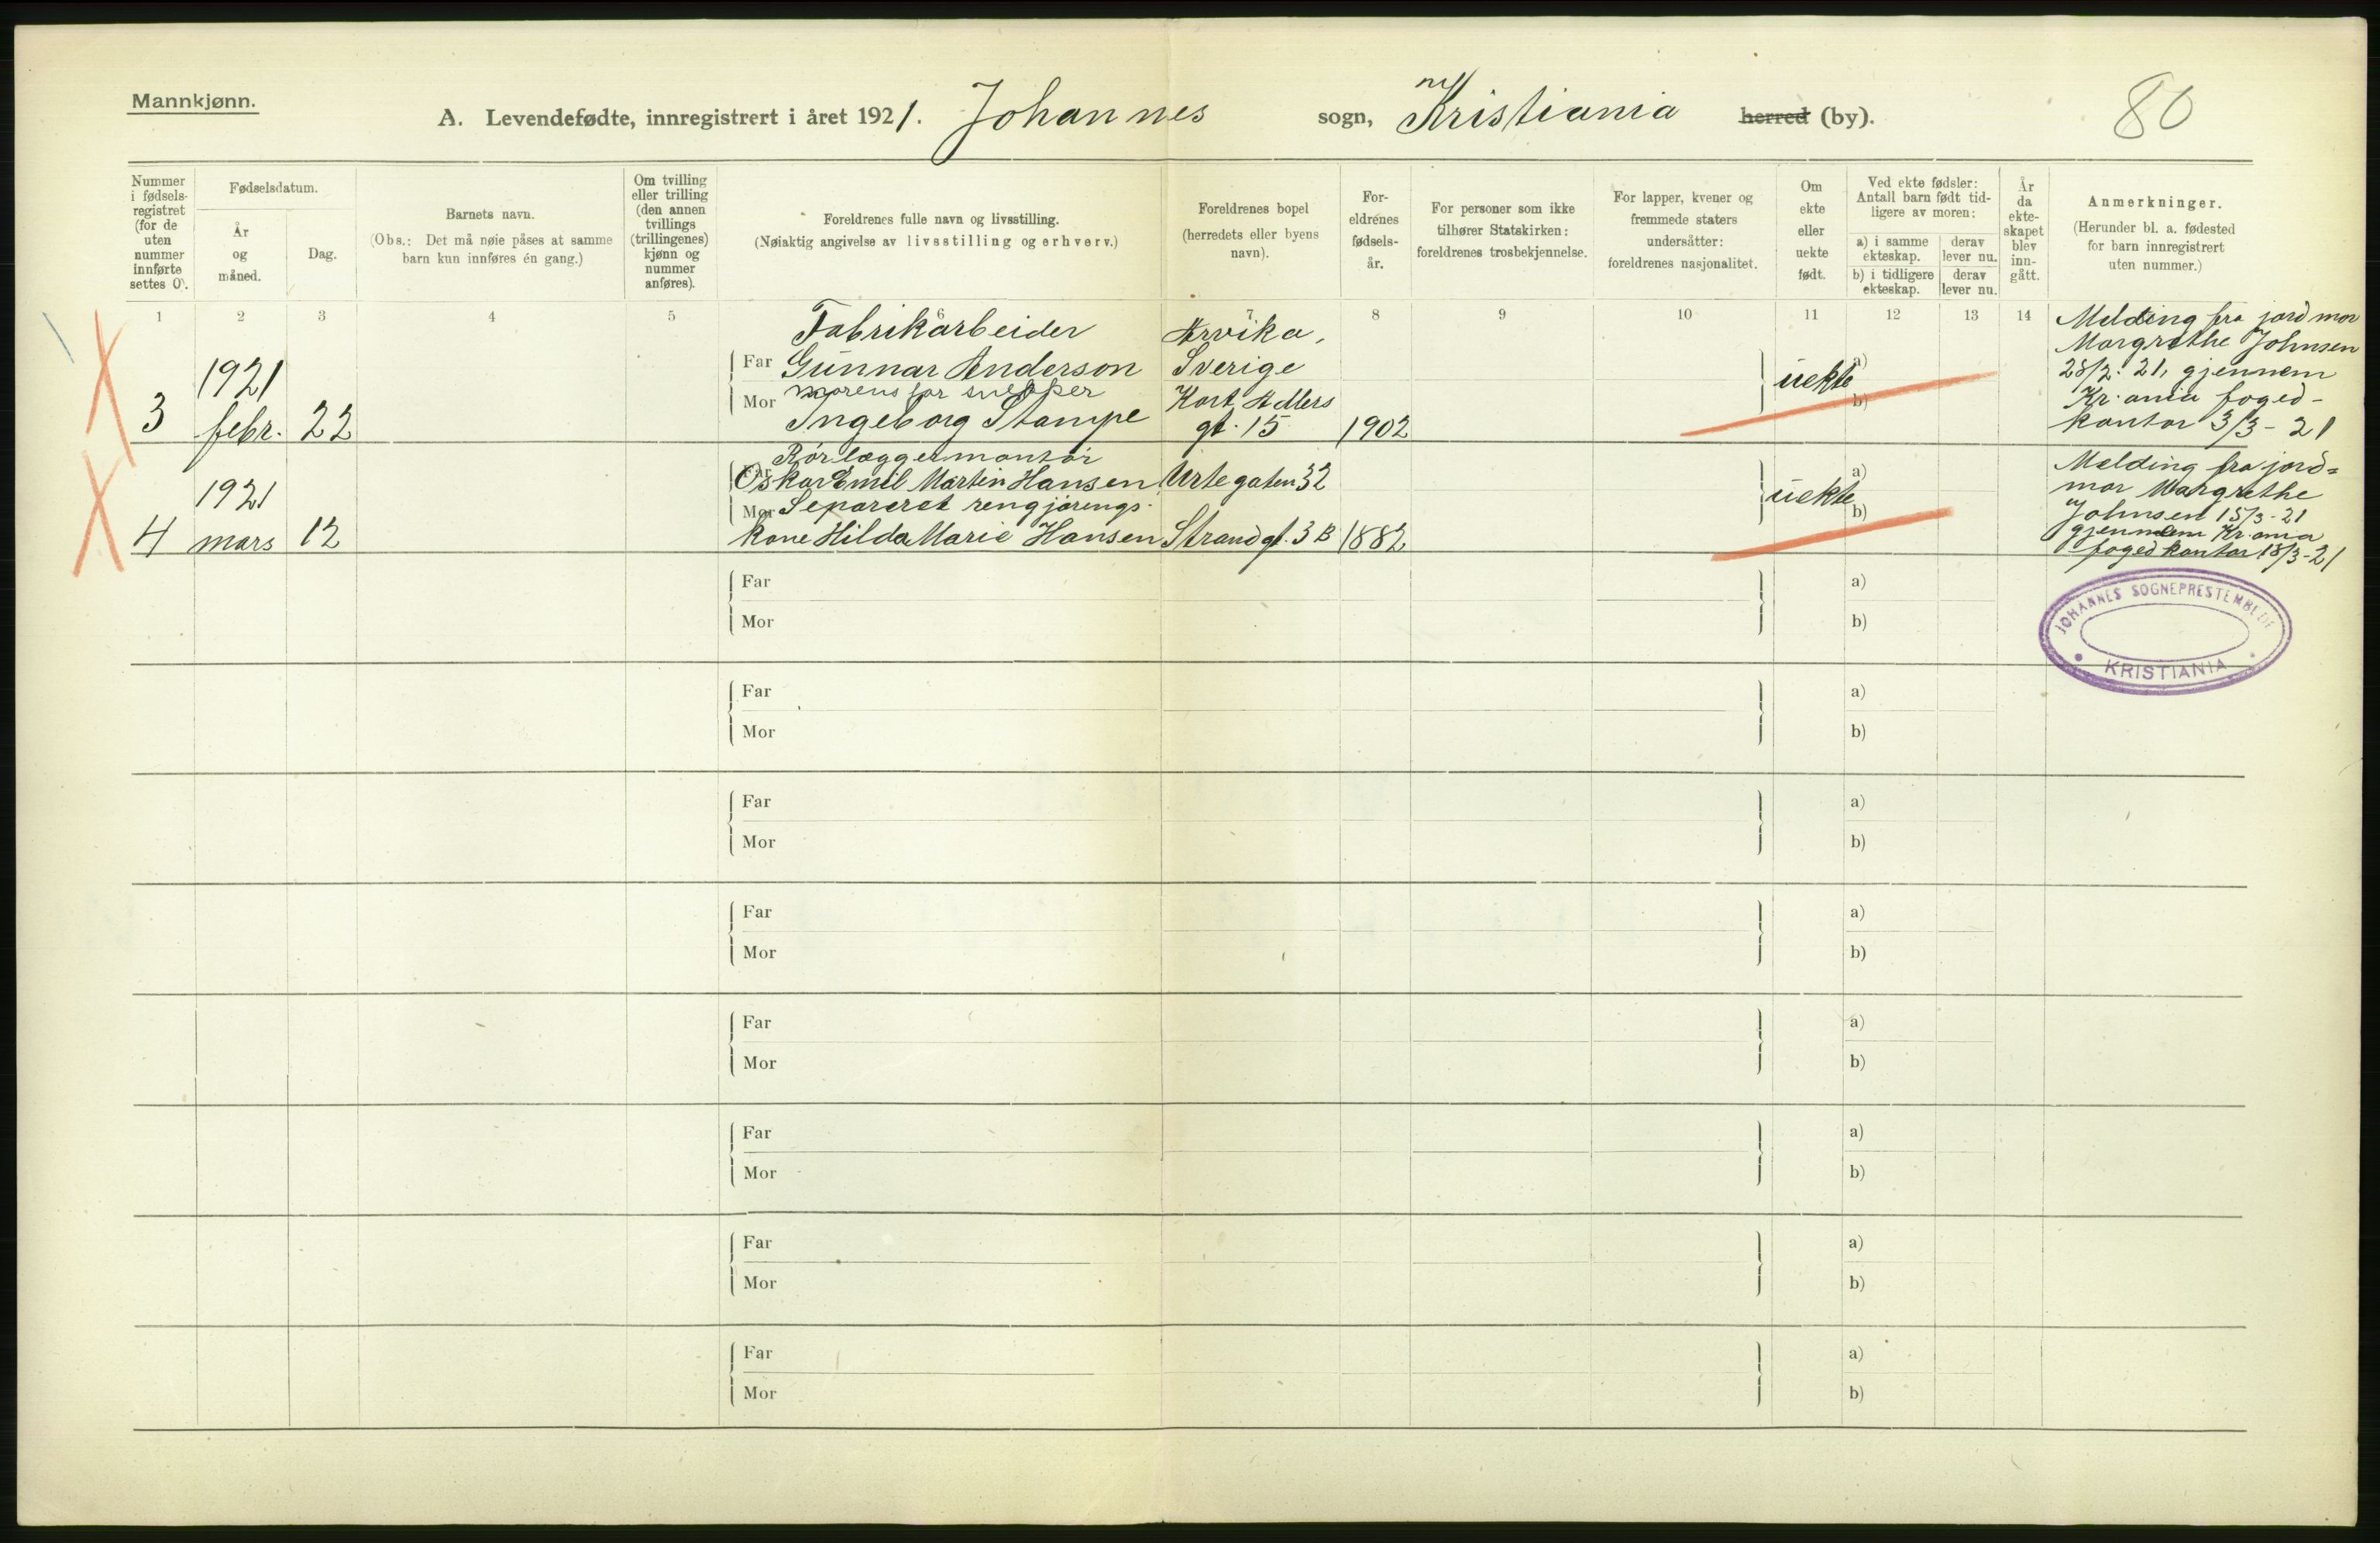 Mannkjønn.
A. Levendefødte, innregistrert i året 1921. Johannes sogn, Kristiania herred (by).
80
Nummer i fødsels-registret (for de uten nummer innførte settes 0).
Fødselsdatum.
År og måned.
Dag.
Barnets navn.
(Obs.: Det må nøie påses at samme barn kun innføres én gang.)
Om tvilling eller trilling (den annen tvillings (trillingenes) kjønn og nummer anføres).
Foreldrenes fulle navn og livsstilling.
(Nøiaktig angivelse av livsstilling og erhverv.)
Foreldrenes bopel (herredets eller byens navn).
For-eldrenes fødsels-år.
For personer som ikke tilhører Statskirken: foreldrenes trosbekjennelse.
For lapper, kvener og fremmede staters undersåtter: foreldrenes nasjonalitet.
Om ekte eller uekte født.
Ved ekte fødsler: Antall barn født tid-ligere av moren:
a) i samme ekteskap.
derav lever nu.
b) i tidligere ekteskap.
derav lever nu.
År da ekte-skapet blev inn-gått.
Anmerkninger.
(Herunder bl. a. fødested for barn innregistrert uten nummer.)
1 2 3 4 5 6 7 8 9 10 11 12 13 14
3
1921
febr. 22
Fabrikarbeider
Far Gunnar Anderson
morens far
Mor Ingeborg Stampe
Arvika,
Sverige
Kort Adlers
gt. 15
1902
uekte
a)
b)
Melding fra jordmor
Margrethe Johnsen
28/2. 21, gjennem
Kr.ania foged-
kontor 3/3 - 21
4
1921
mars 12
Rørlæggermontør
Far Oskar Emil Martin Hansen
Mor Separeret rengjørings-
kone Hilda Marie Hansen
Urtegaten 32
Strandgt. 3 B
1882
uekte
a)
b)
Melding fra jord=
mor Margrethe
Johnsen 15/3-21
gjennem Kr.ania
fogedkontor 18/3-21
JOHANNES SOGNEPRESTEMBEDE
KRISTIANIA
Far a)
Mor b)
Far a)
Mor b)
Far a)
Mor b)
Far a)
Mor b)
Far a)
Mor b)
Far a)
Mor b)
Far a)
Mor b)
Far a)
Mor b)